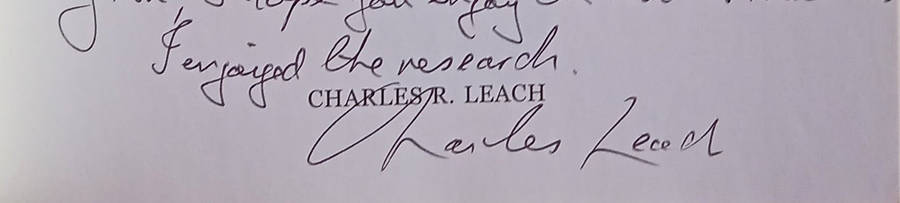 I hope you enjoy
I enjoyed the research.
CHARLES R. LEACH
Charles Leach